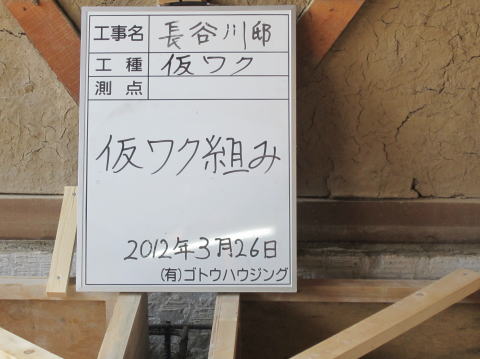 工事名 長谷川邸
工種 仮ワク
測点
仮ワク組み
2012年3月26日
(有)ゴトウハウジング